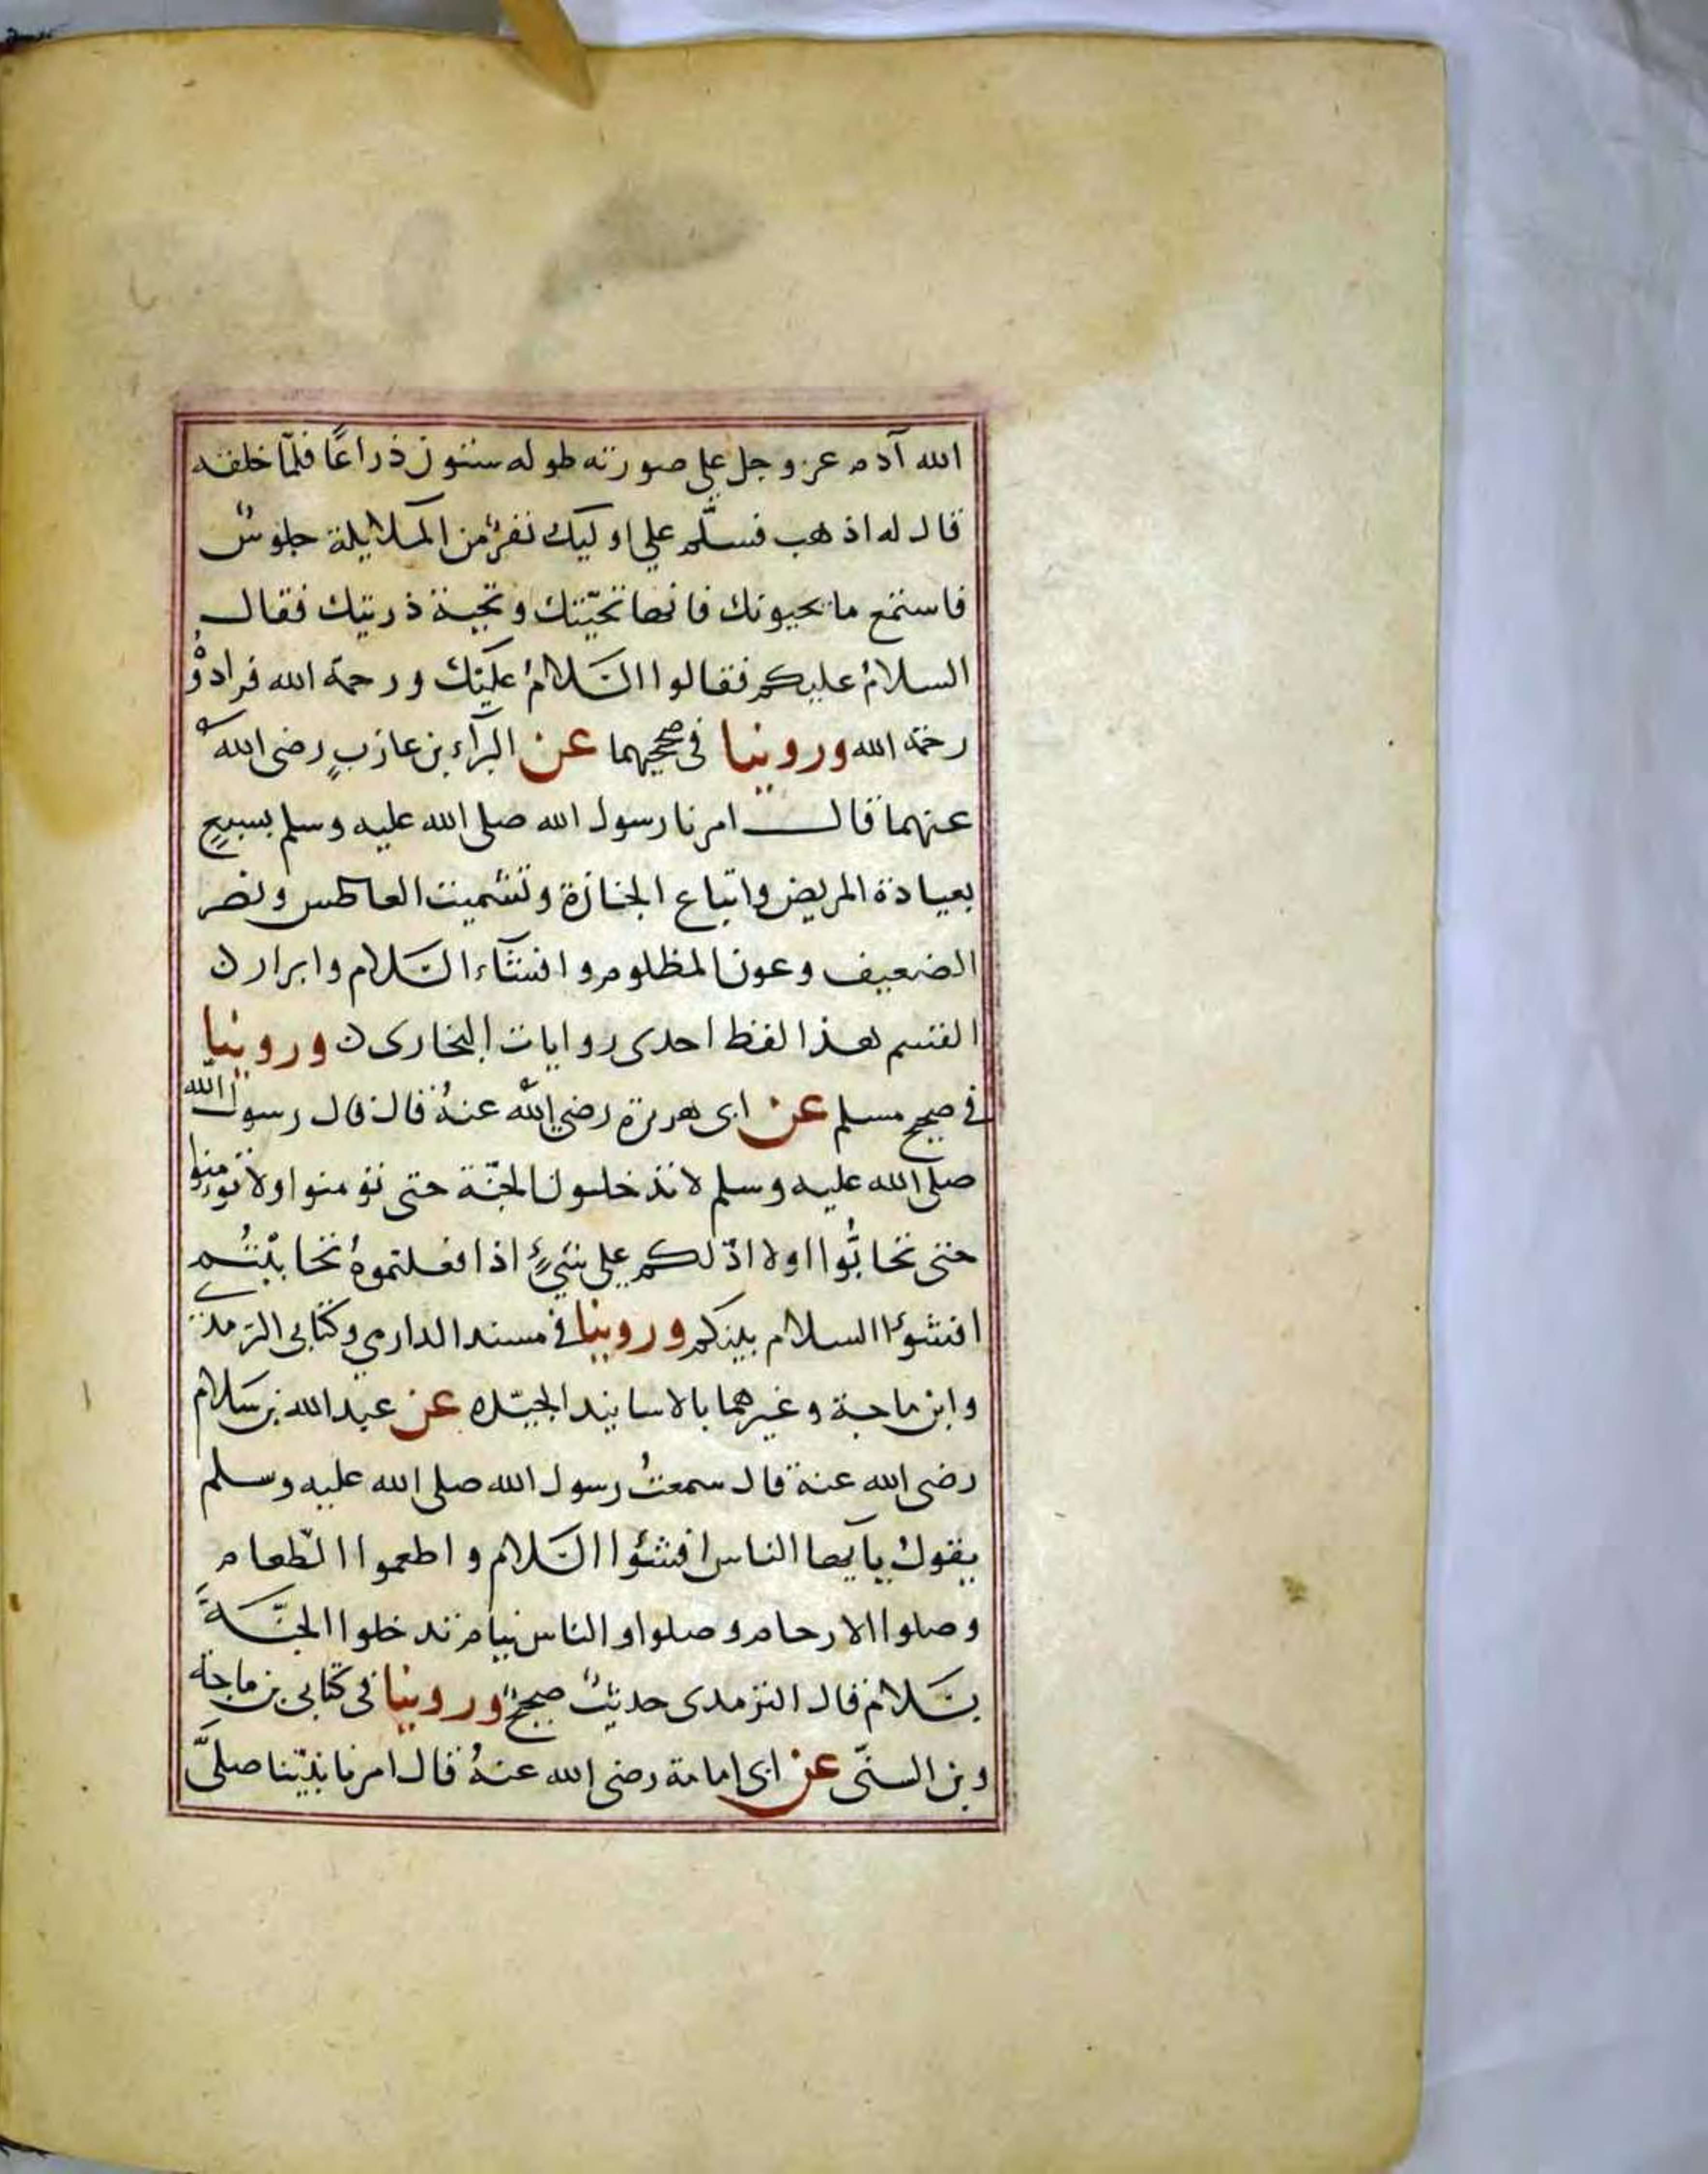 الله آدم عز وجل على صورته طوله ستون ذراعًا فلمّا خلقه
قال له اذهب فسلّم على اوليك نفرٌ من الملايكة جلوسٌ
فاستمع ما يحيونك فانها تحيّتك وتحية ذريتك فقال
السلامُ عليكم فقالوا السَّلامُ عليك ورحمة الله فرادوْ
رحمة الله وروينا فى صحيحيهما عن البرآء بن عازبٍ رضى الله
عنهما قال امرنا رسول الله صلى الله عليه وسلم بسبعٍ
بعيادة المريض واتباع الجنازة وتشميت العاطس ونصر
الضعيف وعون المظلوم وافشآء السَّلام وابرار ن
القسم هذا لفظ احدى روايات البخارى ن وروينا
فى صحيح مسلم عن ابى هريرة رضي الله عنهُ قال قال رسول الله
صلى الله عليه وسلم لا تدخلون الجنّة حتى تؤمنوا ولا تؤمنوا
حتى تحابُّوا اولا ادّلكم على شيءٍ اذا فعلتموهُ تحاببْتُم
افشوُا السلام بينكم وروينا فى مسند الدارمي وكتابى الترمذي
وابن ماجة وغيرهما بالاسانيد الجيّده عن عبد الله بن سَلام
رضى الله عنه قال سمعتُ رسول الله صلى الله عليه وسلم
يقولُ يآيها الناس افشئوا السَّلام واطعموا الطّعام
وصلوا الارحام وصلوا والناس نيام تدخلوا الجنّةَ
بسَلام قال الترمدى حديثٌ صحيحٌ وروينا فى كتابى بن ماجة
وبن السنّى عن ابى امامة رضى الله عنهُ قال امرنا نبيّنا صلىَّ